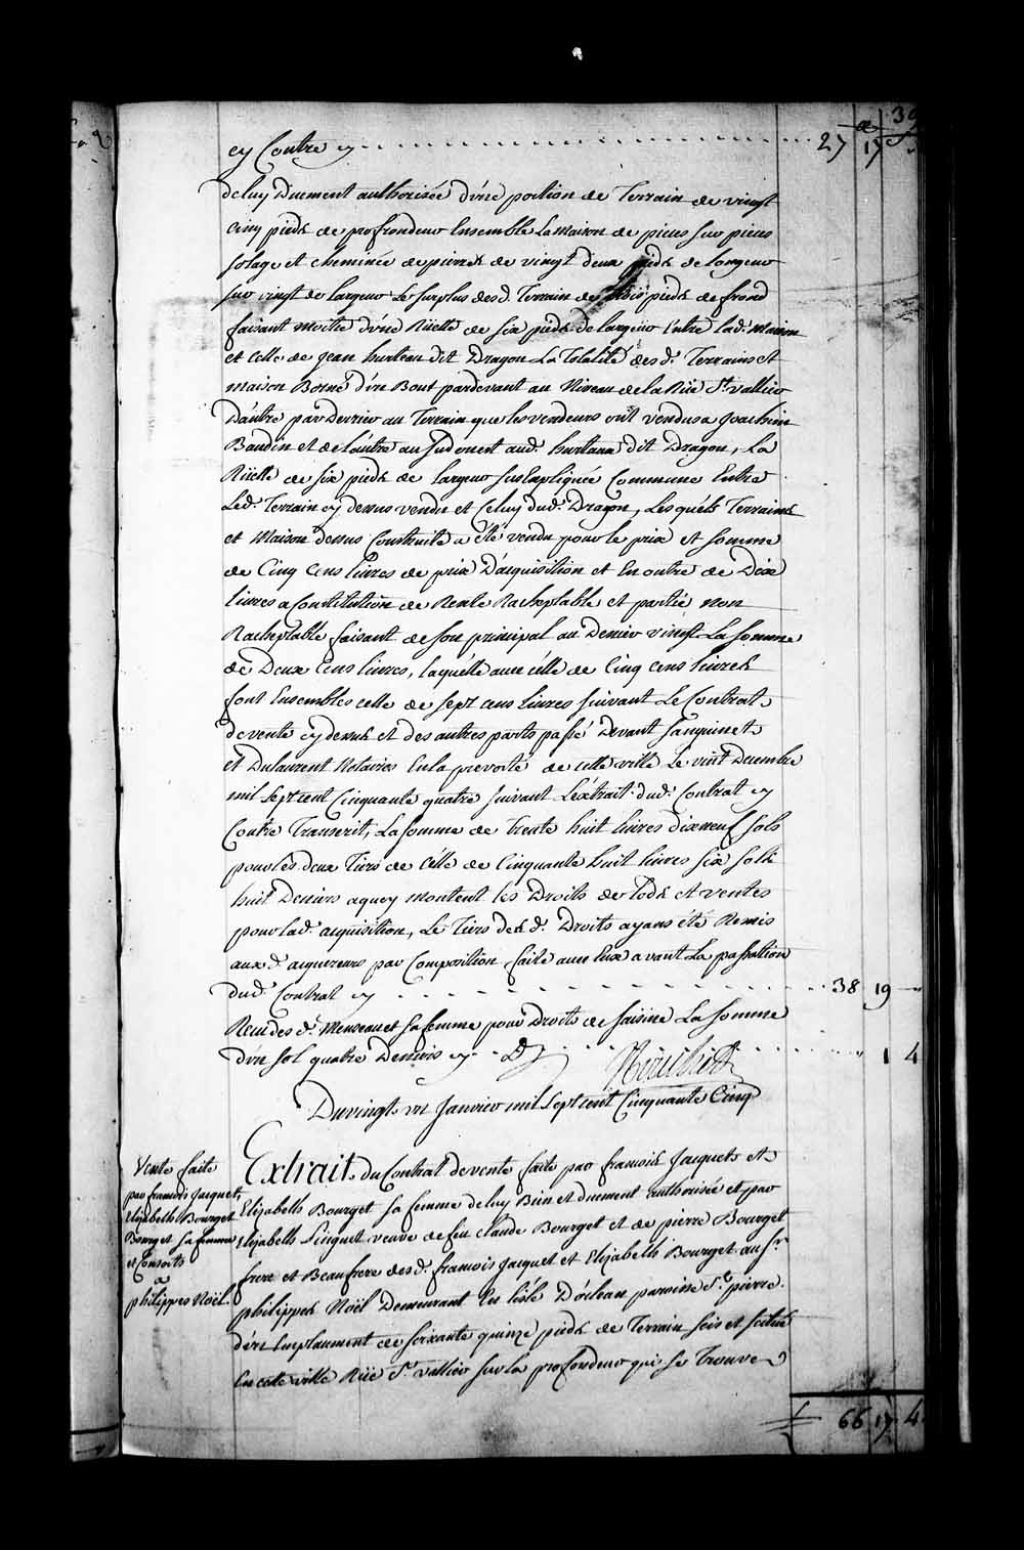 39
cy Contre cy 27 17 "
de luy Duement authorisée d'une portion de Terrain de vingt
cinq pieds de profrondeur Ensemble La maison de pieus sur pieus
solage et cheminée de pierres de vingt deux pieds de longeur
sur vingt de largeur Le surplus desd. Terrain de trois pieds de frond
faisant moitié d'une Rüelle de six pieds de largeur Entre lad. Maison
et celle de Jean hurteau dit Dragon La Totalité desd. Terrains et
maison Borné d'un Bout pardevant au Niveau de la Rüe St. vallier
D'autre par Derrier au Terrain que les vendeurs ont vendus a Joachim
Baudin et de l'autre au sud ouest aud. hurtaux dit Dragon, La
Rüelle de six pieds de largeur susExpliquée Commune Entre
Led. Terrain cy dessus vendu et Celuy dud. Dragon, Lesquels Terrains
et Maison dessus Construite a été vendu pour le prix et somme
de Cinq Cens livres de prix D'acquisition et En outre de Dix
livres a Constitution de Rente Racheptable et partie non
Racheptable faisant de son principal au Denier vingt La somme
de Deux Cens livres, laquelle avec celle de Cinq cens livres
font Ensembles celle de sept cens livres suivant Le Contrat
de vente cy dessus et des autres parts passé Devant Sanguinet
et Dulaurent Notaires En la prevosté de cette ville Le vint Decembre
mil sept cent Cinquante quatre suivant L'extrait dud. Contrat cy
Contre Transcrit, La somme de Trente huit livres dixneuf sols
pour les deux Tiers de Celle de Cinquante huit livres six sols
huit Deniers aquoy montent les Droits de lods et ventes
pour lad. acquisition, Le Tiers desd. Droits ayans été Remis
aux d. acquereurs par Composition faite avec Eux avant La passation
dud. Contrat cy 38 19 "
Reçu desd. Menseau et sa femme pour Droits de saisine La somme
d'un sol quatre Deniers cy " 1 4
Du vingt un Janvier mil sept cent Cinquante Cinq
Vente faite
par francois Jacquet,
Elizabeth Bourget
Bourget sa femme
et Consorts
a
philippes Noël.
Extrait du Contrat de vente faite par francois Jacquet et
Elizabeth Bourget sa femme de luy Bien et duement authorisée et par
Elizabeth Singuet veuve de feu claude Bourget et de pierre Bourget
frere et Beaufrere desd. francois Jacquet et Elizabeth Bourget au Sr.
philippes Noël Demeurant En l'isle D'orlean paroisse St. pierre
d'un Emplacement de soixante quinze pieds de Terrain seis et scitué
En cette ville Rüe St. vallier sur la profondeur qui se Trouve
66 17 4